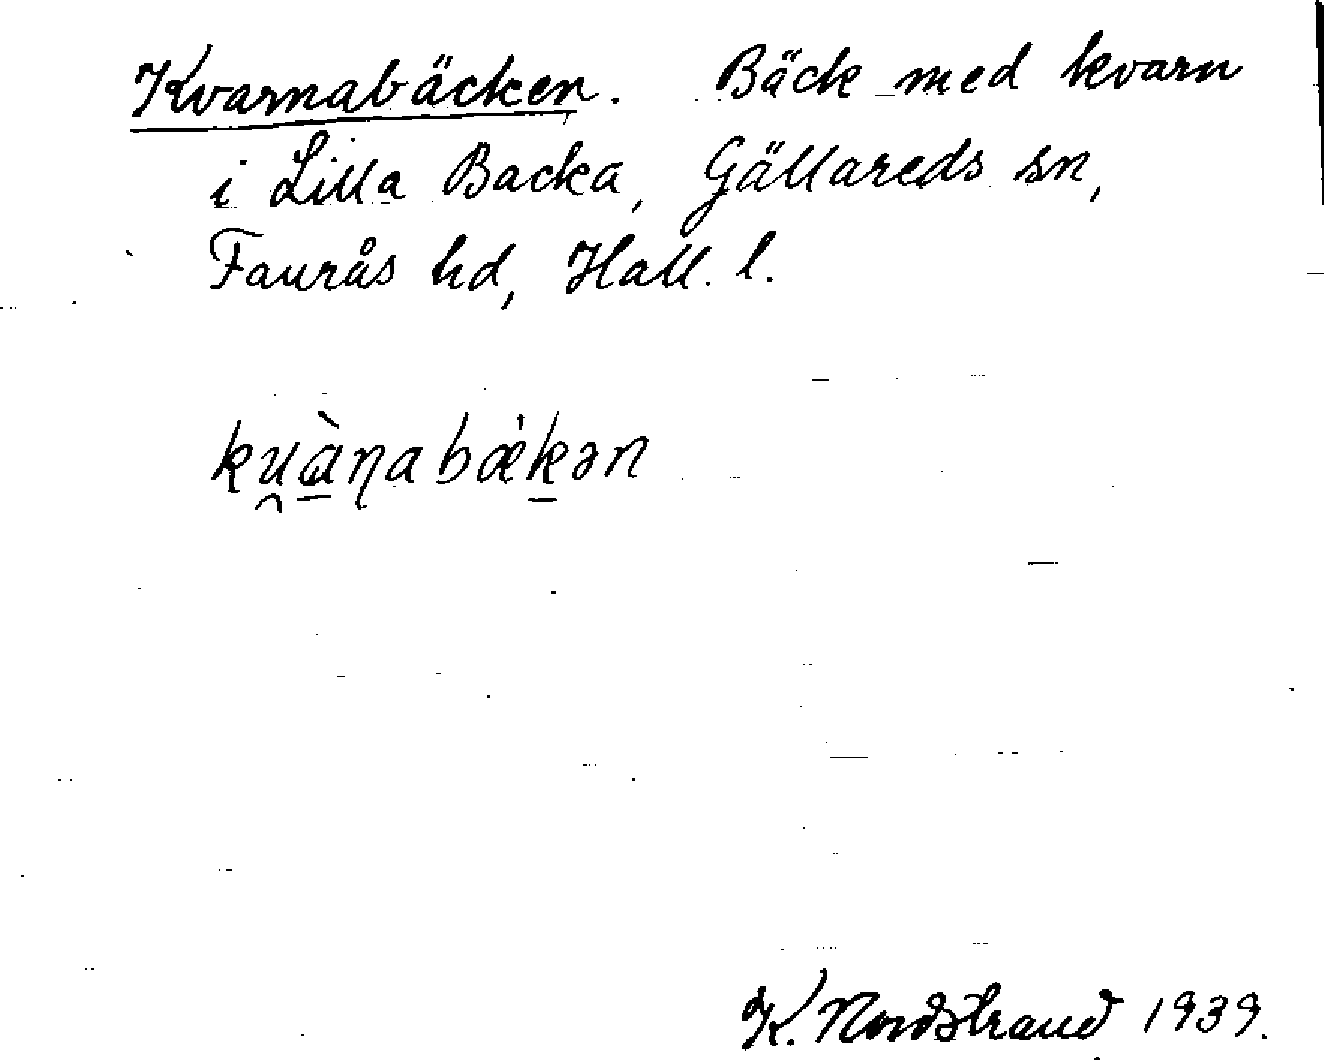 Kvarnabäcken. Bäck med kvarn
i Lilla Backa, Gällareds sn,
Faurås hd, Hall. l.
ku̯à̱ɳabæ̀ḵən
K. Nordstrand 1939.